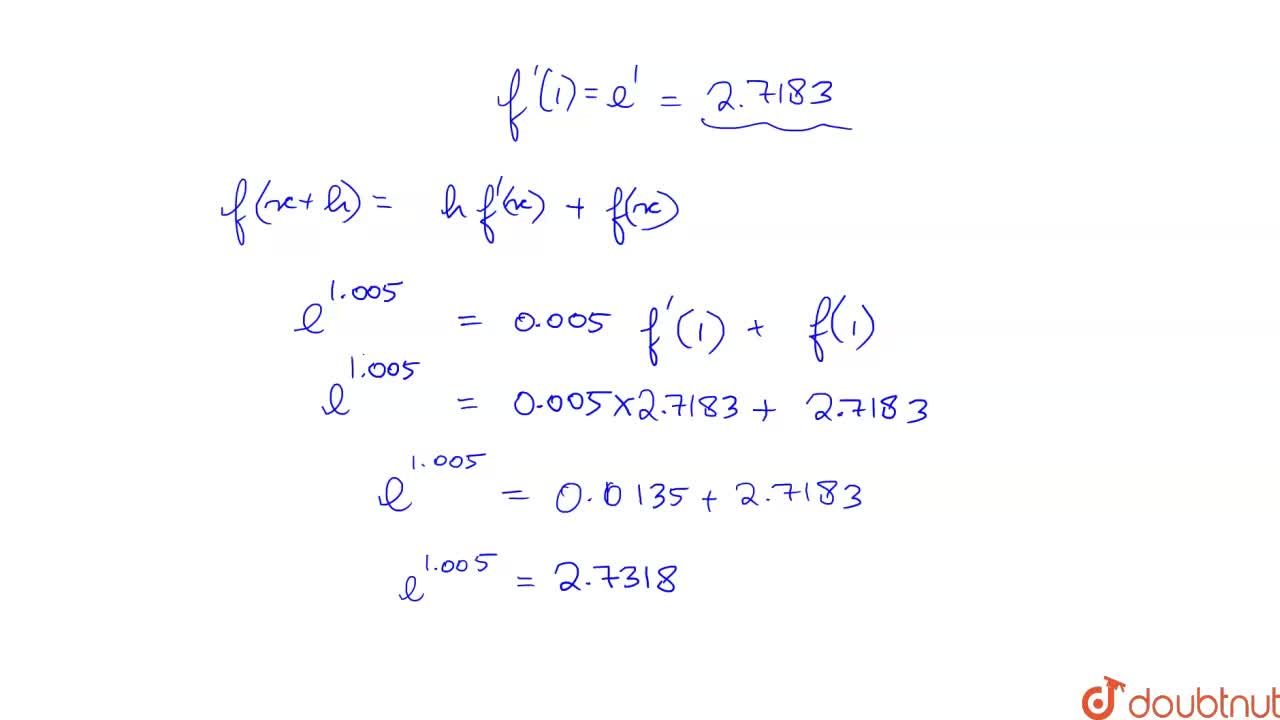 f'(1) = e' = 2.7183
f(x+h) = h f'(x) + f(x)
e^1.005 = 0.005 f'(1) + f(1)
e^1.005 = 0.005×2.7183 + 2.7183
e^1.005 = 0.0135 + 2.7183
e^1.005 = 2.7318
doubtnut